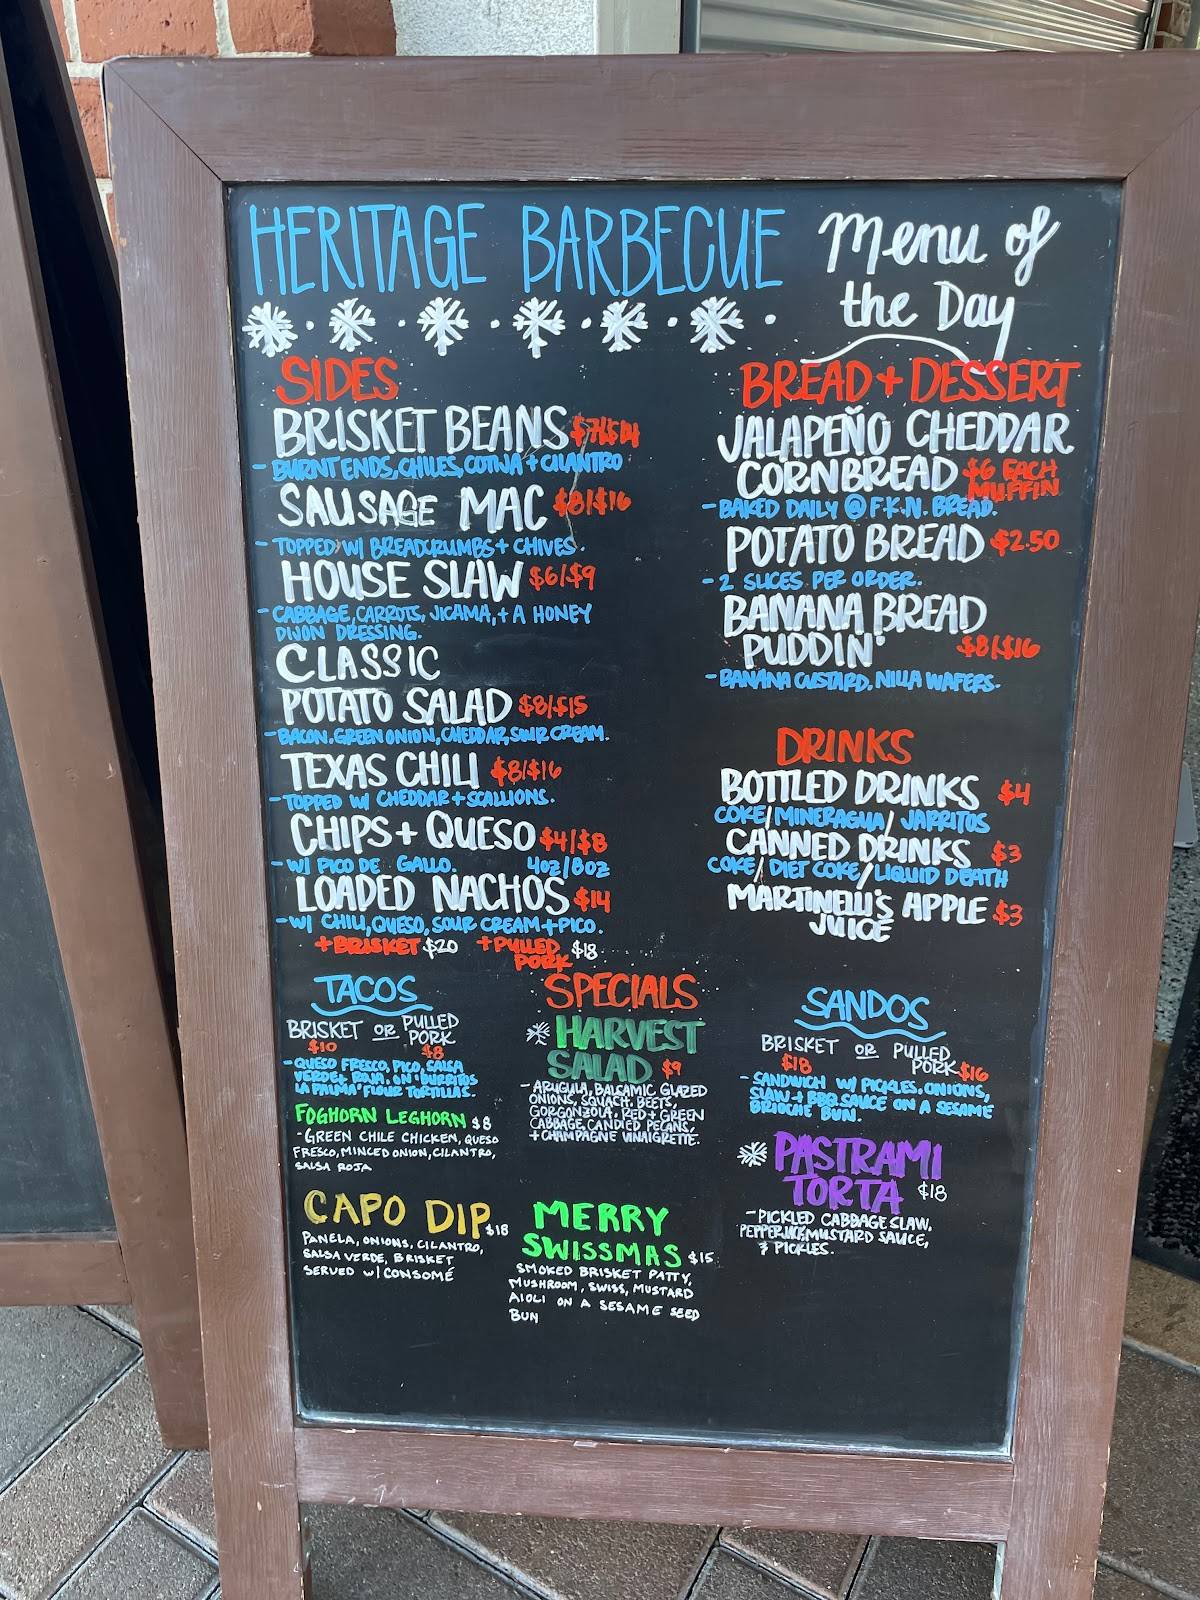 HERITAGE BARBECUE
Menu of
the Day
SIDES
BRISKET BEANS
- BURNT ENDS, CHILES, COTIJA + CILANTRO
SAUSAGE MAC $8/$16
- TOPPED W/ BREADCRUMBS + CHIVES.
HOUSE SLAW $6/$9
- CABBAGE, CARROTS, JICAMA, + A HONEY
DIJON DRESSING.
CLASSIC
POTATO SALAD $8/$15
- BACON, GREEN ONION, CHEDDAR, SOUR CREAM.
TEXAS CHILI $8/$16
- TOPPED W/ CHEDDAR + SCALLIONS.
CHIPS + QUESO $4/$8
- W/ PICO DE GALLO. 4oz/8oz
LOADED NACHOS $14
- W/ CHILI, QUESO, SOUR CREAM + PICO.
+ BRISKET $20 + PULLED $18
PORK
BREAD + DESSERT
JALAPEÑO CHEDDAR
CORNBREAD $6 EACH
MUFFIN
- BAKED DAILY @ F.K.N. BREAD.
POTATO BREAD $2.50
- 2 SLICES PER ORDER.
BANANA BREAD
PUDDIN' $8/$16
- BANANA CUSTARD, NILLA WAFERS.
DRINKS
BOTTLED DRINKS $4
COKE/ MINERAGUA/ JARRITOS
CANNED DRINKS $3
COKE/ DIET COKE/ LIQUID DEATH
MARTINELLI'S APPLE $3
JUICE
TACOS
BRISKET OR PULLED
PORK
$10 $8
- QUESO FRESCO, PICO, SALSA
VERDE + ROJA, ON "BURRITOS
LA PALMA" FLOUR TORTILLAS.
FOGHORN LEGHORN $8
- GREEN CHILE CHICKEN, QUESO
FRESCO, MINCED ONION, CILANTRO,
SALSA ROJA
CAPO DIP $18
PANELA, ONIONS, CILANTRO,
SALSA VERDE, BRISKET
SERVED W/ CONSOMÉ
SPECIALS
HARVEST
SALAD $9
- ARUGULA, BALSAMIC GLAZED
ONIONS, SQUASH, BEETS,
GORGONZOLA, RED + GREEN
CABBAGE, CANDIED PECANS,
+ CHAMPAGNE VINAIGRETTE.
MERRY
SWISSMAS $15
SMOKED BRISKET PATTY,
MUSHROOM, SWISS, MUSTARD
AIOLI ON A SESAME SEED
BUN
SANDOS
BRISKET OR PULLED
$18 PORK $16
- SANDWICH W/ PICKLES, ONIONS,
SLAW + BBQ SAUCE ON A SESAME
BRIOCHE BUN.
PASTRAMI
TORTA $18
- PICKLED CABBAGE SLAW,
PEPPERJACK, MUSTARD SAUCE,
& PICKLES.